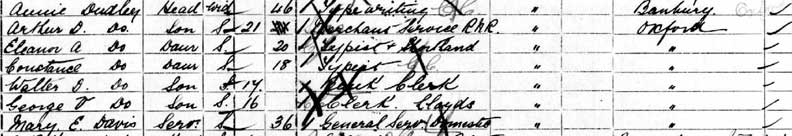 Annie Dudley Head Wid 46 Typewriting " Banbury
Arthur D. Do. Son S 21 Merchant Service R.N.R. " Oxford
Eleanor A Do Daur S 20 Typist & Shorthand " "
Constance Do Daur S 18 Typist " "
Walter D. Do Son S 17 Clerk " "
George V Do Son S. 16 Clerk. Lloyds " "
Mary E. Davis Serv. S 36 General Serv. Domestic " "